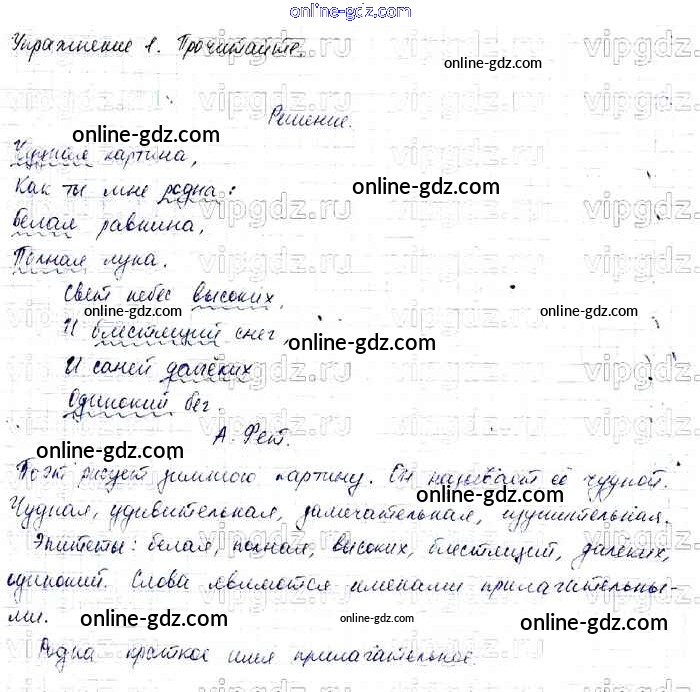 online-gdz.com
Упражнение 1. Прочитайте.
online-gdz.com
Решение.
online-gdz.com
Чудная картина,
Как ты мне родна:
online-gdz.com
Белая равнина,
Полная луна.
Свет небес высоких,
online-gdz.com
И блестящий снег,
online-gdz.com
И саней далёких
Одинокий бег.
online-gdz.com
А. Фет.
online-gdz.com
Поэт рисует зимнюю картину. Он называет её чудной.
online-gdz.com
Чудная, удивительная, замечательная, изумительная.
Эпитеты: белая, полная, высоких, блестящий, далёких,
одинокий. Слова являются именами прилагательны-
ми.
online-gdz.com
online-gdz.com
Родна краткое имя прилагательное.
online-gdz.com
vipgdz.ru